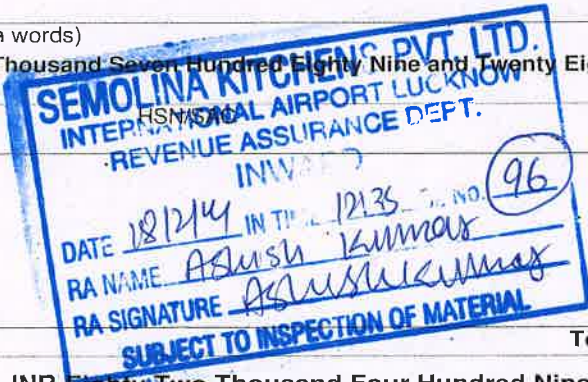 a words)
Thousand Seven Hundred Eighty Nine and Twenty Ei
SEMOLINA KITCHENS PVT. LTD.
HSN/SAC
INTERNATIONAL AIRPORT LUCKNOW
REVENUE ASSURANCE DEPT.
INWARD
DATE IN TIME 12:35 NO. 96
RA NAME Ashish Kumar
RA SIGNATURE Ashish Kumar
SUBJECT TO INSPECTION OF MATERIAL
To
INR Eighty Two Thousand Four Hundred Nine